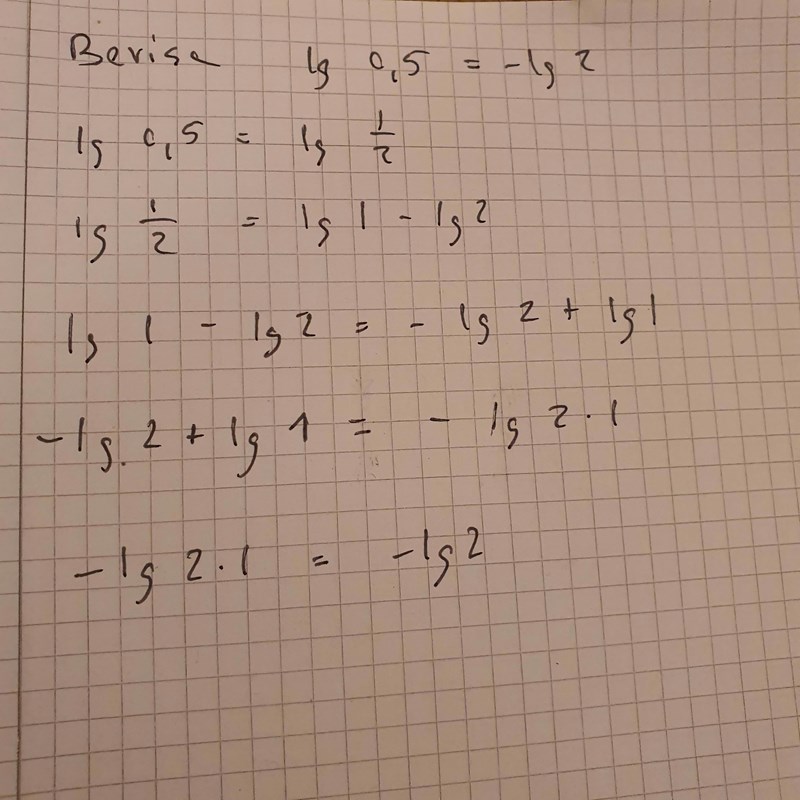 Bevisa lg 0,5 = -lg 2
lg 0,5 = lg 1/2
lg 1/2 = lg 1 - lg 2
lg 1 - lg 2 = - lg 2 + lg 1
-lg 2 + lg 1 = - lg 2 · 1
-lg 2 · 1 = -lg 2